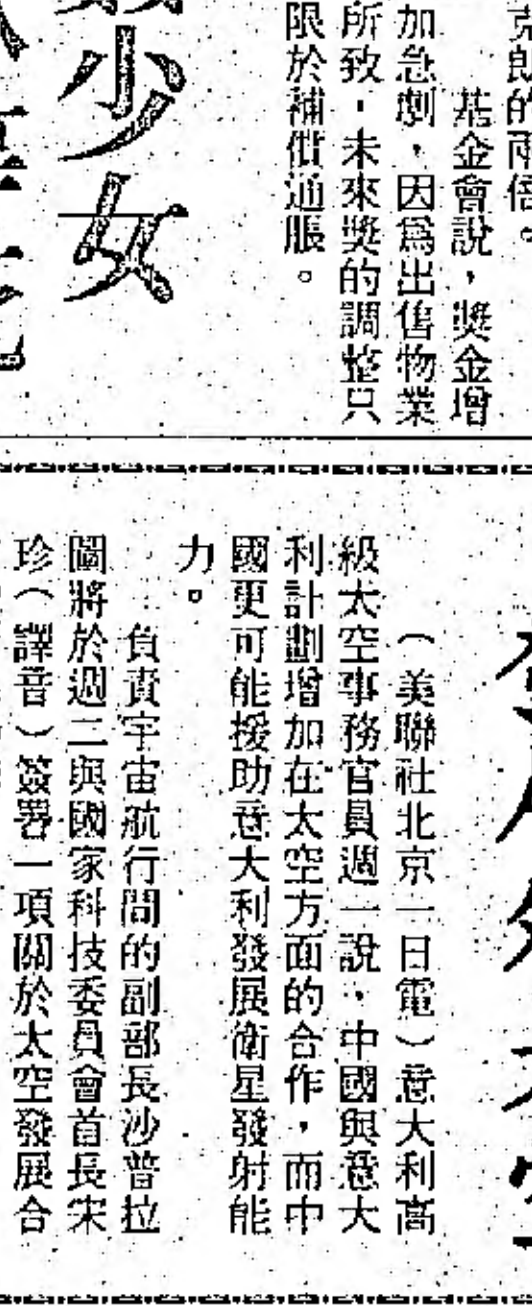 克朗的兩倍。
基金會說，獎金增
加急劇，因爲出售物業
所致，未來獎的調整只
限於補償通脹。
少女
（美聯社北京一日電）意大利高
級太空事務官員週一說，中國與意大
利計劃增加在太空方面的合作，而中
國更可能援助意大利發展衛星發射能
力。
負責宇宙航行問的副部長沙普拉
圖將於週二與國家科技委員會首長宋
珍（譯音）簽署一項關於太空發展合